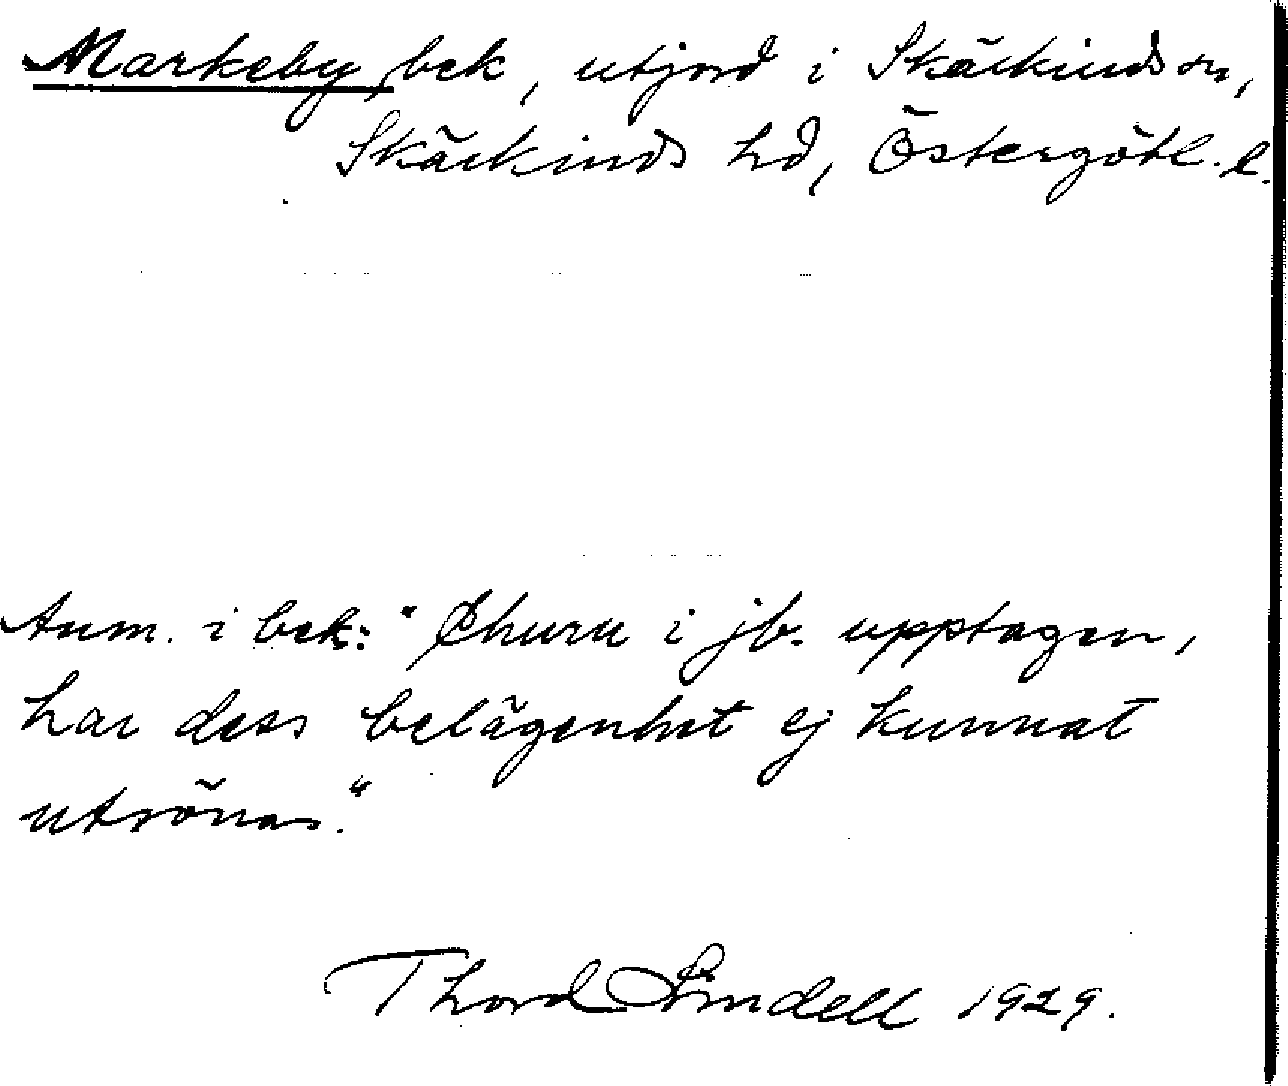 Markeby bek, utjord i Skärkinds sn,
Skärkinds hd, Östergötl. l.
Anm. i bek: "Ehuru i jb. upptagen,
har dess belägenhet ej kunnat
utrönas."
Thord Lindell 1929.